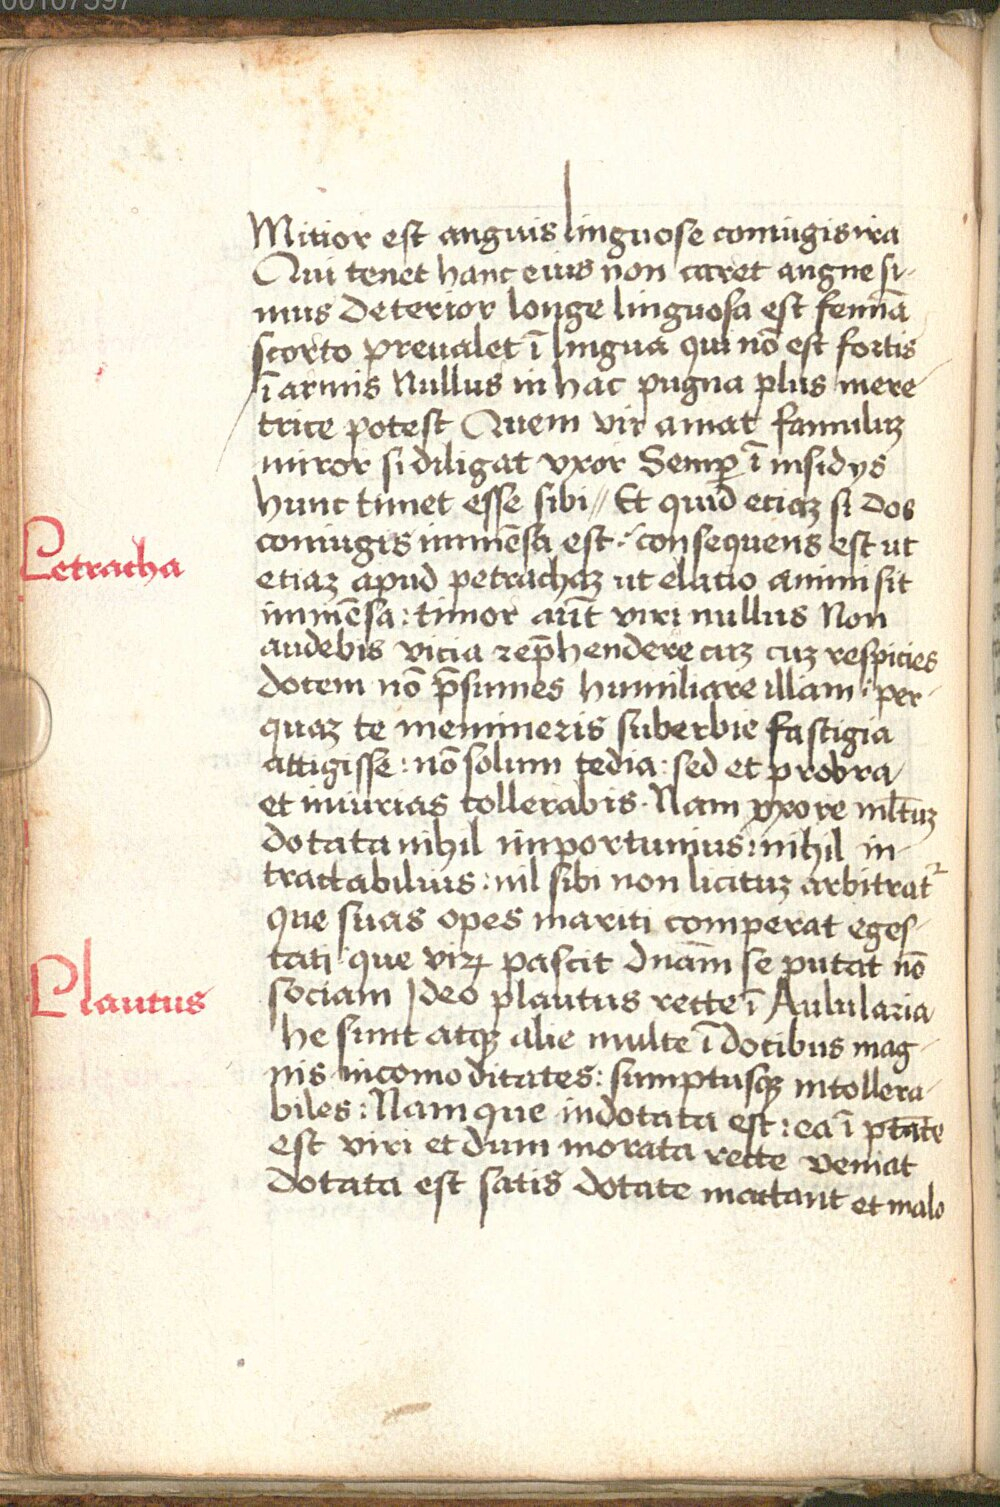 00107597
Mitior est anguis linguose coniugis ira
Qui tenet hanc eius non caret angue si-
nus Deterior longe linguosa est femīa
scorto preualet ī lingua qui nō est fortis
ī armis Nullus in hac pugna plus mere-
trice potest Quem vir amat famulūz
miror si diligat vxor Semꝑ ī insidys
hunc timet esse sibi // Et quid etiaz si dos
coniugis inmēsa est : consequens est ut
Petracha
etiaz apud petrachaz ut elatio animi sit
inmēsa : timor aūt viri nullus Non
audebis vicia rep̄hendere cuz cuz respicies
dotem nō p̄sumes humiliare illam : per-
quaz te memineris suberbie fastigia
attigisse : nō solum tedia : sed et probra
et iniurias tollerabis . Nam vxore ml̄tuz
dotata nihil inportunius : nihil in-
tractabilius : nil sibi non licituz arbitrat᷑
que suas opes mariti comperat eges-
tati que viꝝ pascit dnām se putat nō
Plautus
sociam Ideo plautus recte ī Aulularia
he sunt atqꝫ alie multe ī dotibus mag-
nis incomoditates : sumptusqꝫ intollera-
biles : Nam que indotata est : ea ī ptāte
est viri et dum morata recte veniat
dotata est satis dotate mactant et malo